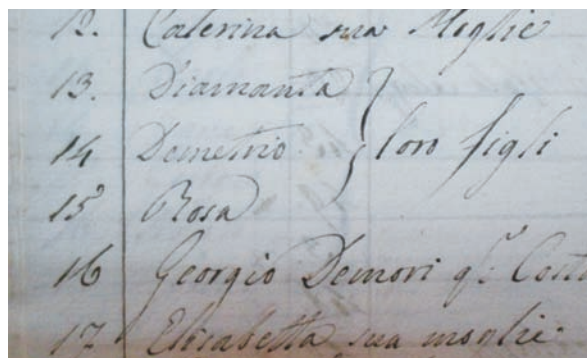 12. Caterina sua Moglie
13. Diamanta
14 Demetrio. } loro figli
15 Rosa
16 Georgio Demori q.m Cost
17 Elisabetta sua moglie.